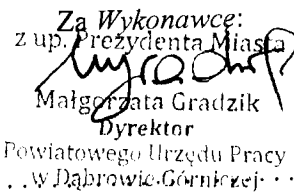 Za Wykonawcę:
z up. Prezydenta Miasta
Małgorzata Gradzik
Dyrektor
Powiatowego Urzędu Pracy
w Dąbrowie Górniczej